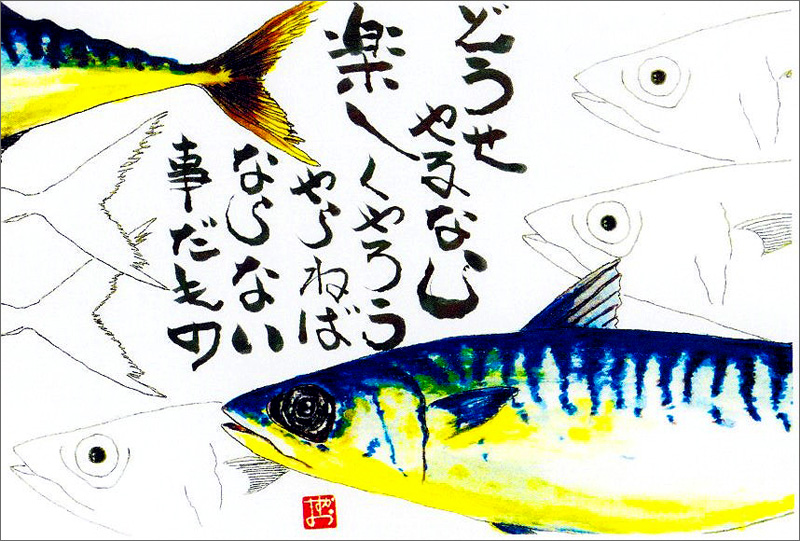 どうせ
やるなら
楽し
くやろう
やらねば
ならない
事だもの